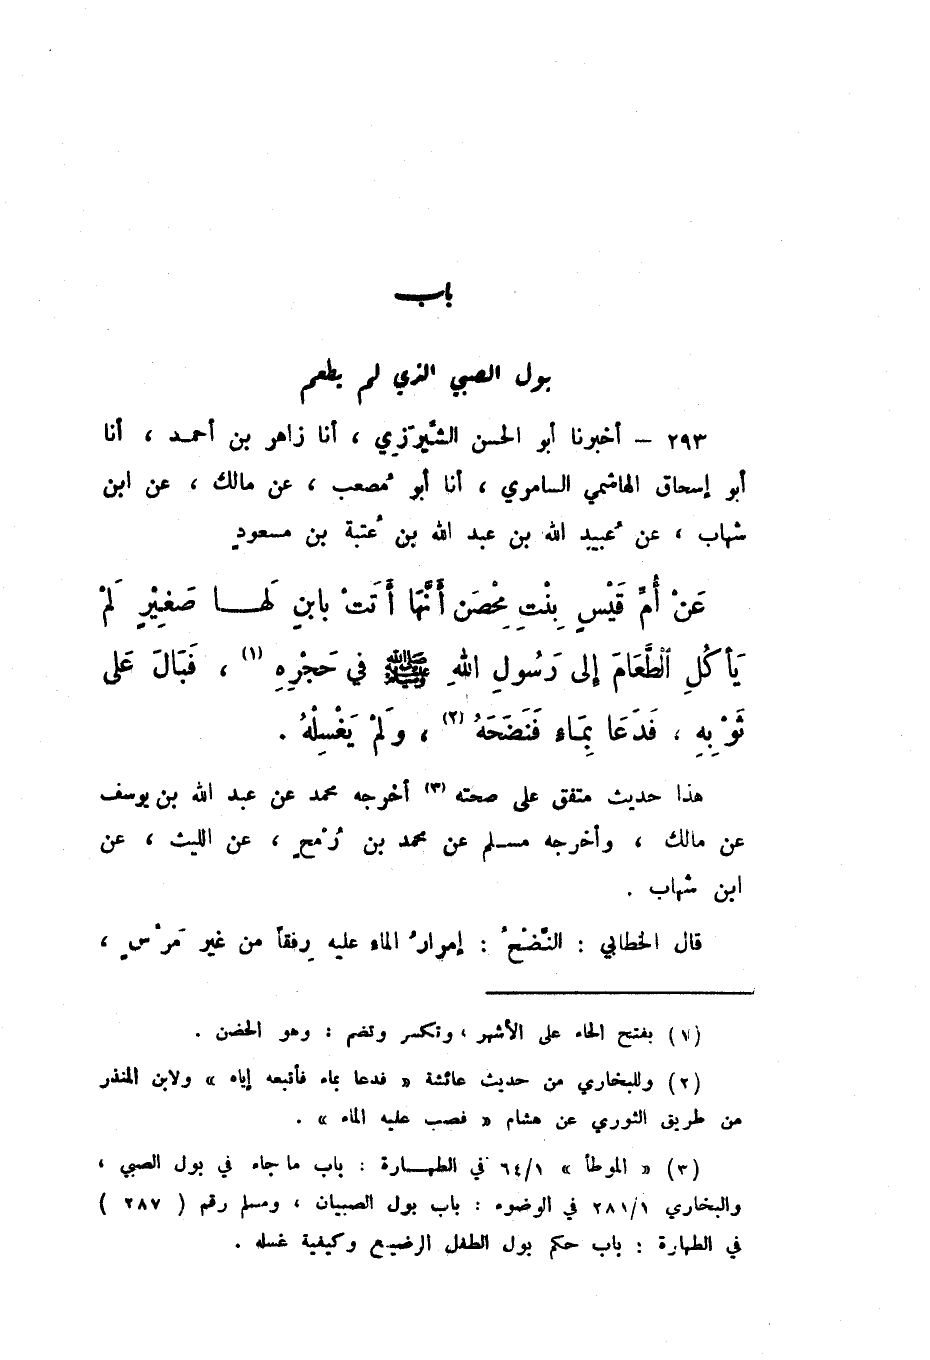 باب
بول الصبي الذي لم يطعم
٢٩٣ – أخبرنا أبو الحسن الشَّيرَزي ، أنا زاهر بن أحمد ، أنا
أبو إسحاق الهاشمي السامري ، أنا أبو مُصعب ، عن مالك ، عن ابن
شهاب ، عن عُبيد الله بن عبد الله بن عُتبة بن مسعودٍ
عَنْ أُمِّ قَيْسٍ بِنْتِ مِحْصَنٍ أَنَّهَا أَتَتْ بابنٍ لَها صَغِيْرٍ لَمْ
يَأكُلِ الطَّعَامَ إلى رَسُولِ اللهِ ﷺ في حَجْرِهِ (١) ، فَبَالَ عَلى
ثَوْبِهِ ، فَدَعَا بِمَاءٍ فَنَضَحَهُ (٢) ، ولَمْ يَغْسِلْهُ .
هذا حديث متفق على صحته (٣) أخرجه محمد عن عبد الله بن يوسف
عن مالك ، وأخرجه مسلم عن محمد بن رُمْحٍ ، عن الليث ، عن
ابن شهاب .
قال الخطابي : النَّضْحُ : إمرارُ الماء عليه رِفقاً من غير مَرْسٍ ،
(١) بفتح الحاء على الأشهر ، وتكسر وتضم : وهو الحضن .
(٢) وللبخاري من حديث عائشة « فدعا بماء فأتبعه إياه » ولابن المنذر
من طريق الثوري عن هشام « فصب عليه الماء » .
(٣) « الموطأ » ٦٤/١ في الطهارة : باب ما جاء في بول الصبي ،
والبخاري ٢٨١/١ في الوضوء : باب بول الصبيان ، ومسلم رقم ( ٢٨٧ )
في الطهارة : باب حكم بول الطفل الرضيع وكيفية غسله .